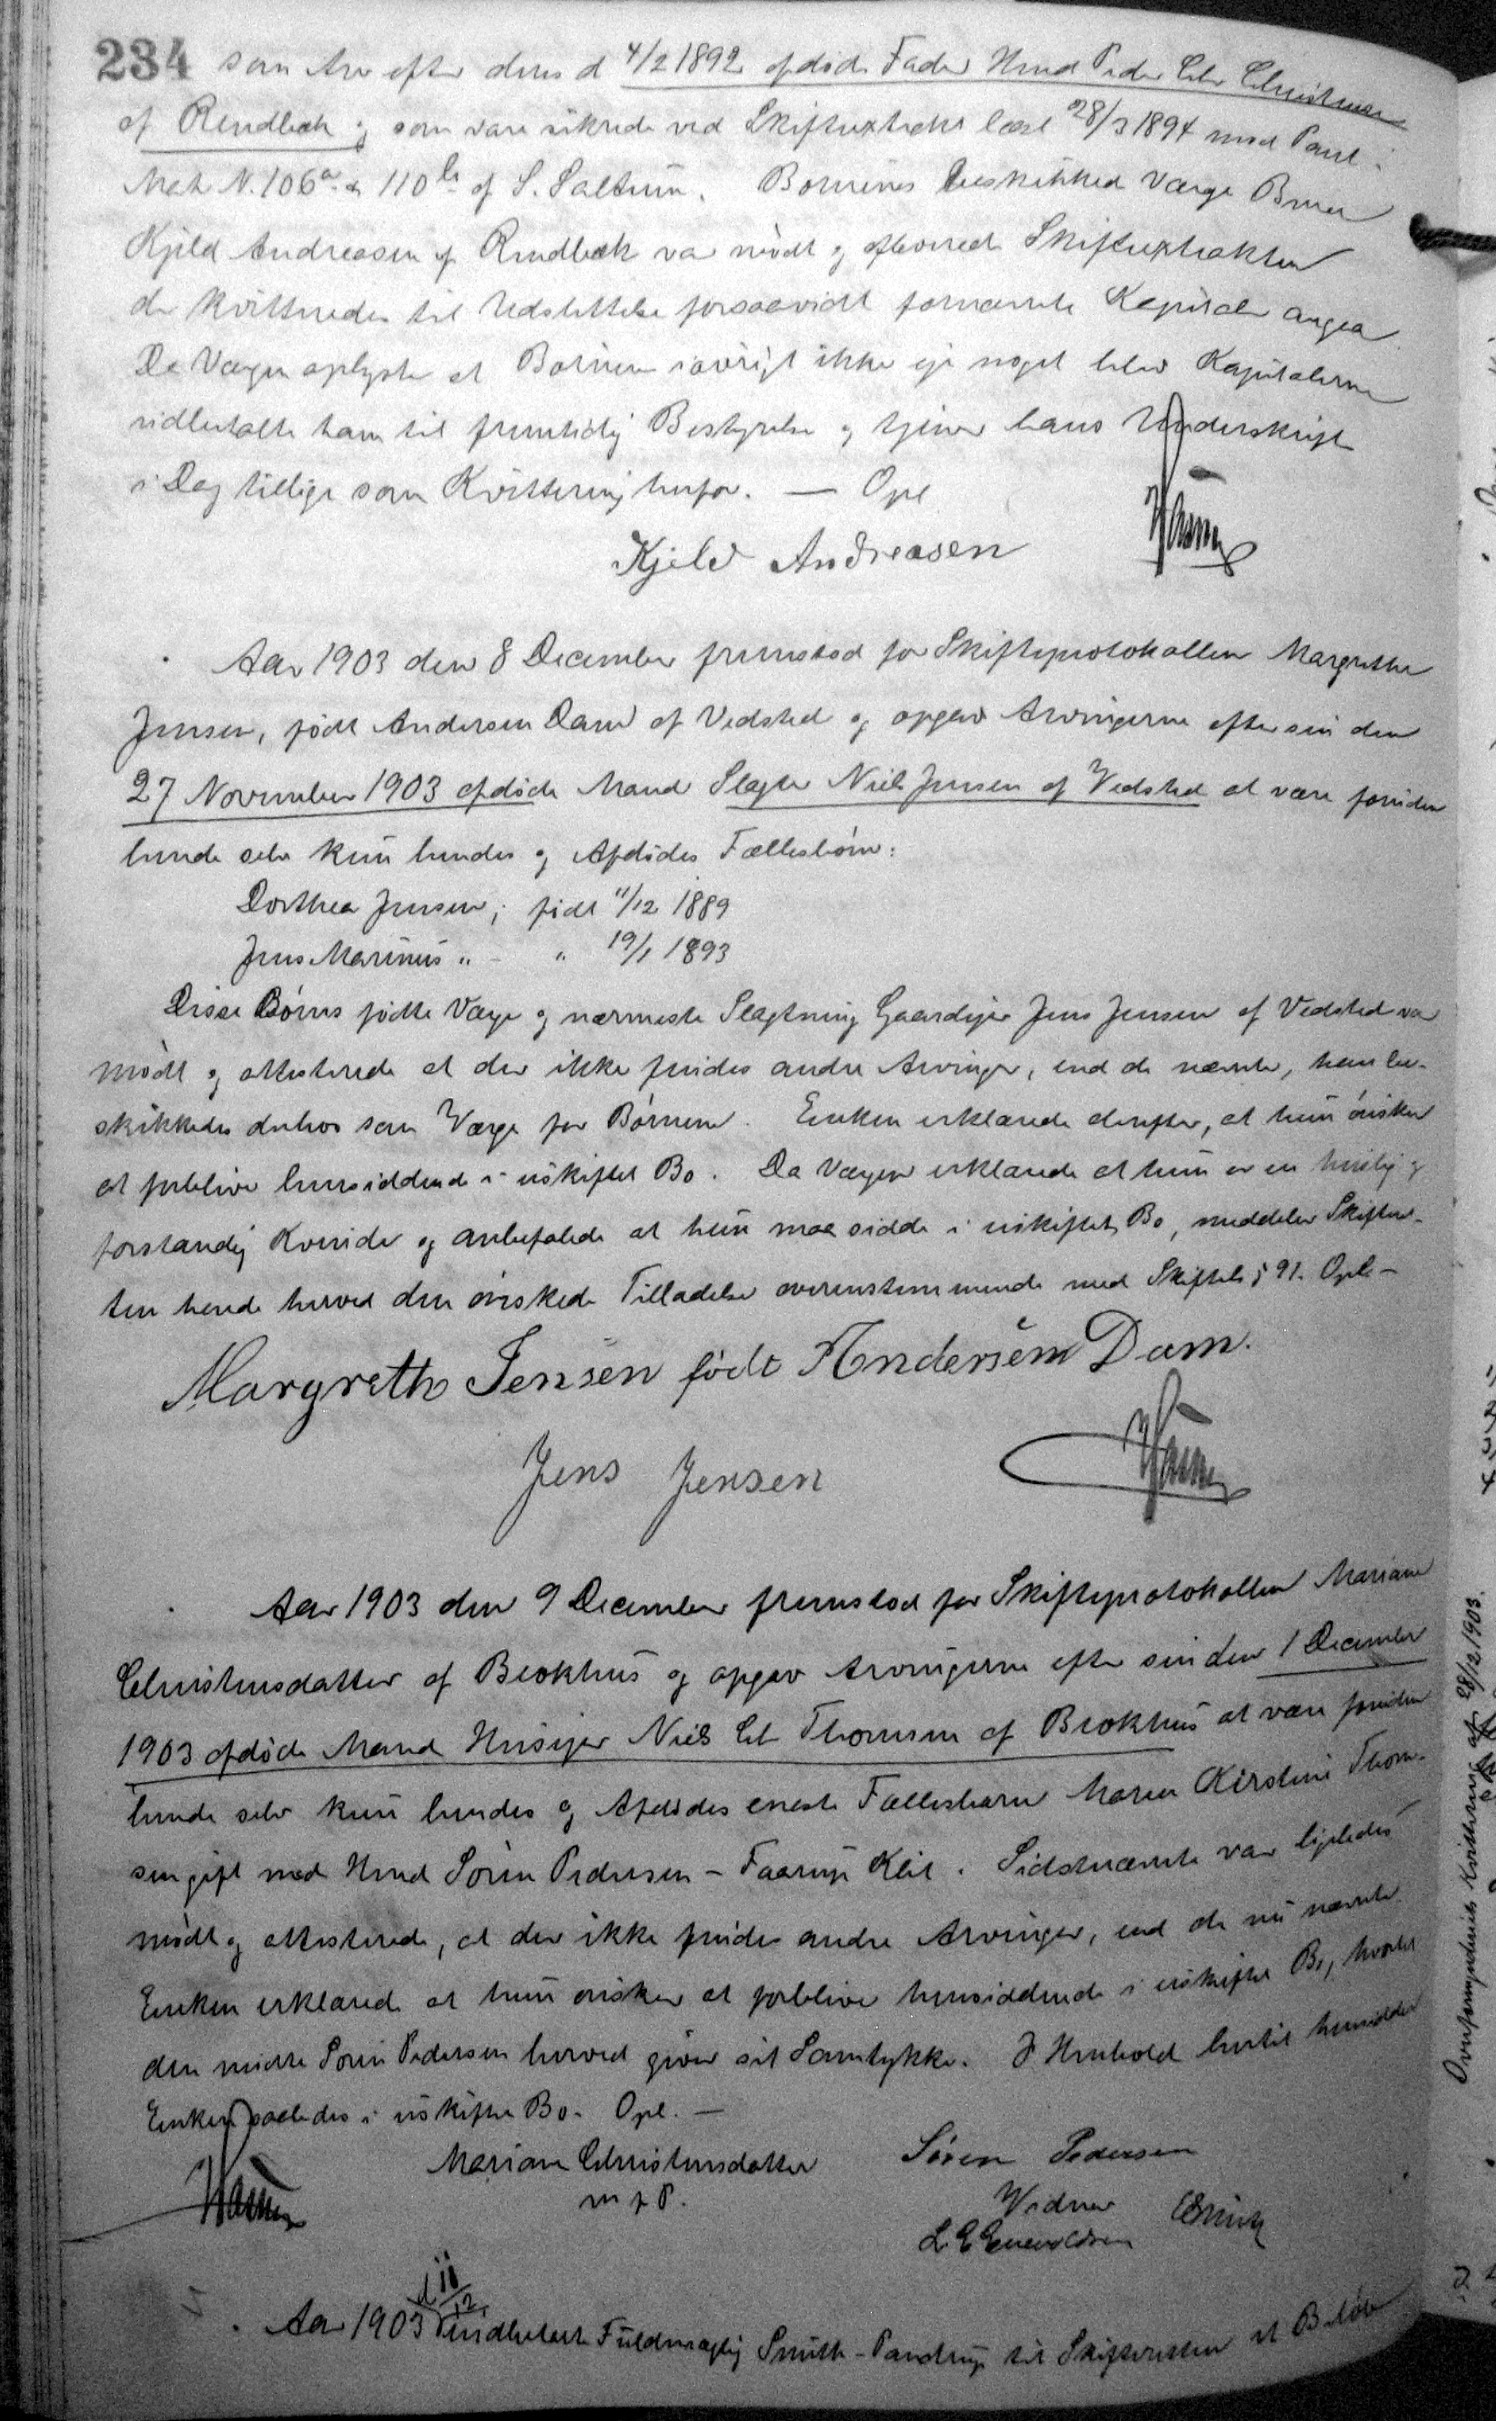 234 som Arv efter deres d 4/2 1892 afdøde Fader Hmd Peder Chr Christensen
af Rendbæk og som vare sikrede ved Skifteextrakt læst 28/3 1894 med Pant i
Matr N. 106a & 110b af S. Saltum. Børnenes beskikkede Værge
Kjeld Andreasen af Rendbæk var mødt og afleverede Skifteextrakten
der kvitteredes til Udslettelse forsaavidt fornævnte Kapitaler angaa
Da Værgen oplyste at Børnene iøvrigt ikke eje noget blev Kapitalerne
udbetalte ham til fremtidig Bestyrelse og tjener hans Underskrift
i Dag tillige som Kvittering herfor. — Opl
Kjeld Andreasen
Aar 1903 den 8 December fremstod for Skifteprotokollen Margrethe
Jensen, født Andersen Dam af Vedsted og opgav Arvingerne efter sin den
27 November 1903 afdøde Mand Slagter Niels Jensen af Vedsted at være foruden
hende selv kun hendes og Afdødes Fællesbørn:
Dorthea Jensen, født 11/12 1889
Jens Marinus " - " 19/1 1893
Disse Børns fødte Værge og nærmeste Slægtning Gaardejer Jens Jensen af Vedsted var
mødt og attesterede at der ikke findes andre Arvinger, end de nævnte, han be-
skikkedes derhos som Værge for Børnene. Enken erklærede derefter, at hun ønsker
at forblive hensiddende i uskiftet Bo. Da Værgen erklærede at hun er en huslig og
forstandig Kvinde og anbefalede at hun maa sidde i uskiftet Bo, meddeler Skifteret-
ten hende herved den ønskede Tilladelse overensstemmende med Skiftel § 91. Opl. -
Margrethe Jensen født Andersen Dam.
Jens Jensen
Aar 1903 den 9 December fremstod for Skifteprotokollen Mariane
Christensdatter af Blokhus og opgav Arvingerne efter sin den 1 December
1903 afdøde Mand Husejer Niels Chr Thomsen af Blokhus at være foruden
hende selv kun hendes og Afdødes eneste Fællesbarn Maren Kirstine Thom-
sen gift med Hmd Søren Pedersen - Faarup Klit. Sidstnævnte var ligeledes
mødt og attesterede, at der ikke findes andre Arvinger, end de nu nævnte.
Enken erklærede at hun ønsker at forblive hensiddende i uskiftet Bo, hvortil
den mødte Søren Pedersen herved giver sit Samtykke. I Henhold hertil hensidder
Enken saaledes i uskiftet Bo. Opl. —
Mariane Christensdatter Søren Pedersen
m f P.
Vidner
L E Enevoldsen ESmith
Aar 1903 d 11/12 indbetalte Fuldmægtig Smith - Pandrup til Skifteretten et Beløb
Overformynderiets Kvittering af 28/12 1903.